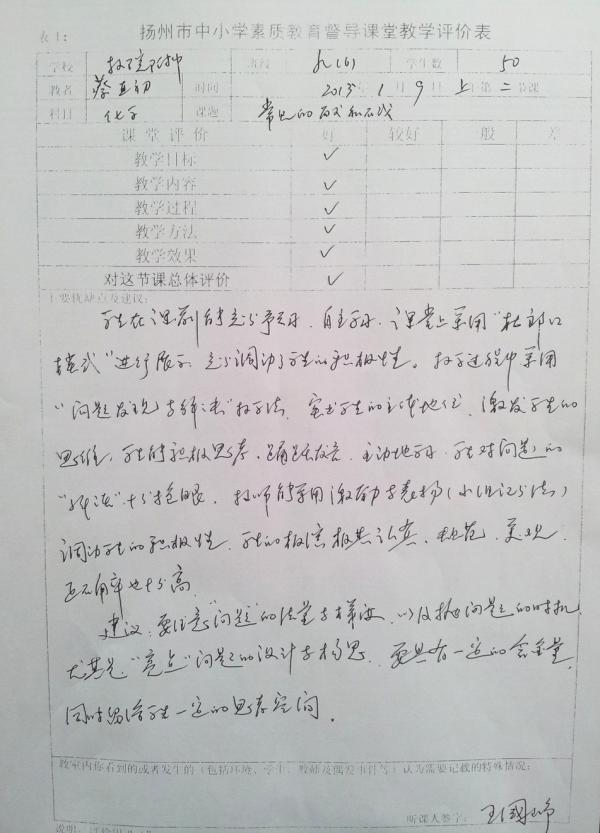 表1:
扬州市中小学素质教育督导课堂教学评价表
学校 教院附中 班级 九(6) 学生数 50
教者 蔡 时间 2013年1月9日上午第二节课
科目 化学 课题 常见的
课堂评价 好 较好 一般 差
教学目标 ✓
教学内容 ✓
教学过程 ✓
教学方法 ✓
教学效果 ✓
对这节课总体评价 ✓
主要优缺点及建议:
学生在课前能充分预习、自主学习,课堂上采用“杜郎口
模式”进行展示,充分调动了学生的积极性。教学过程中采用
“问题发现与解决”教学法,突出学生的主体地位,激发学生的
思维,学生能积极思考,踊跃发言,主动地学习,学生对问题的
“ ”十分抢眼。教师能采用激励与表扬(小组记分法)
调动学生的积极性,学生的板演极其认真、规范、美观,
正确率也十分高
建议:要注意“问题”的 与 ,以及 问题的时机,
尤其是“亮点”问题的设计与构思,要具有一定的含金量,
同时留给学生一定的思考空间。
教室内你看到的或者发生的(包括环境、学生、教师及偶发事件等)认为需要记载的特殊情况:
听课人签字: 王国
说明: